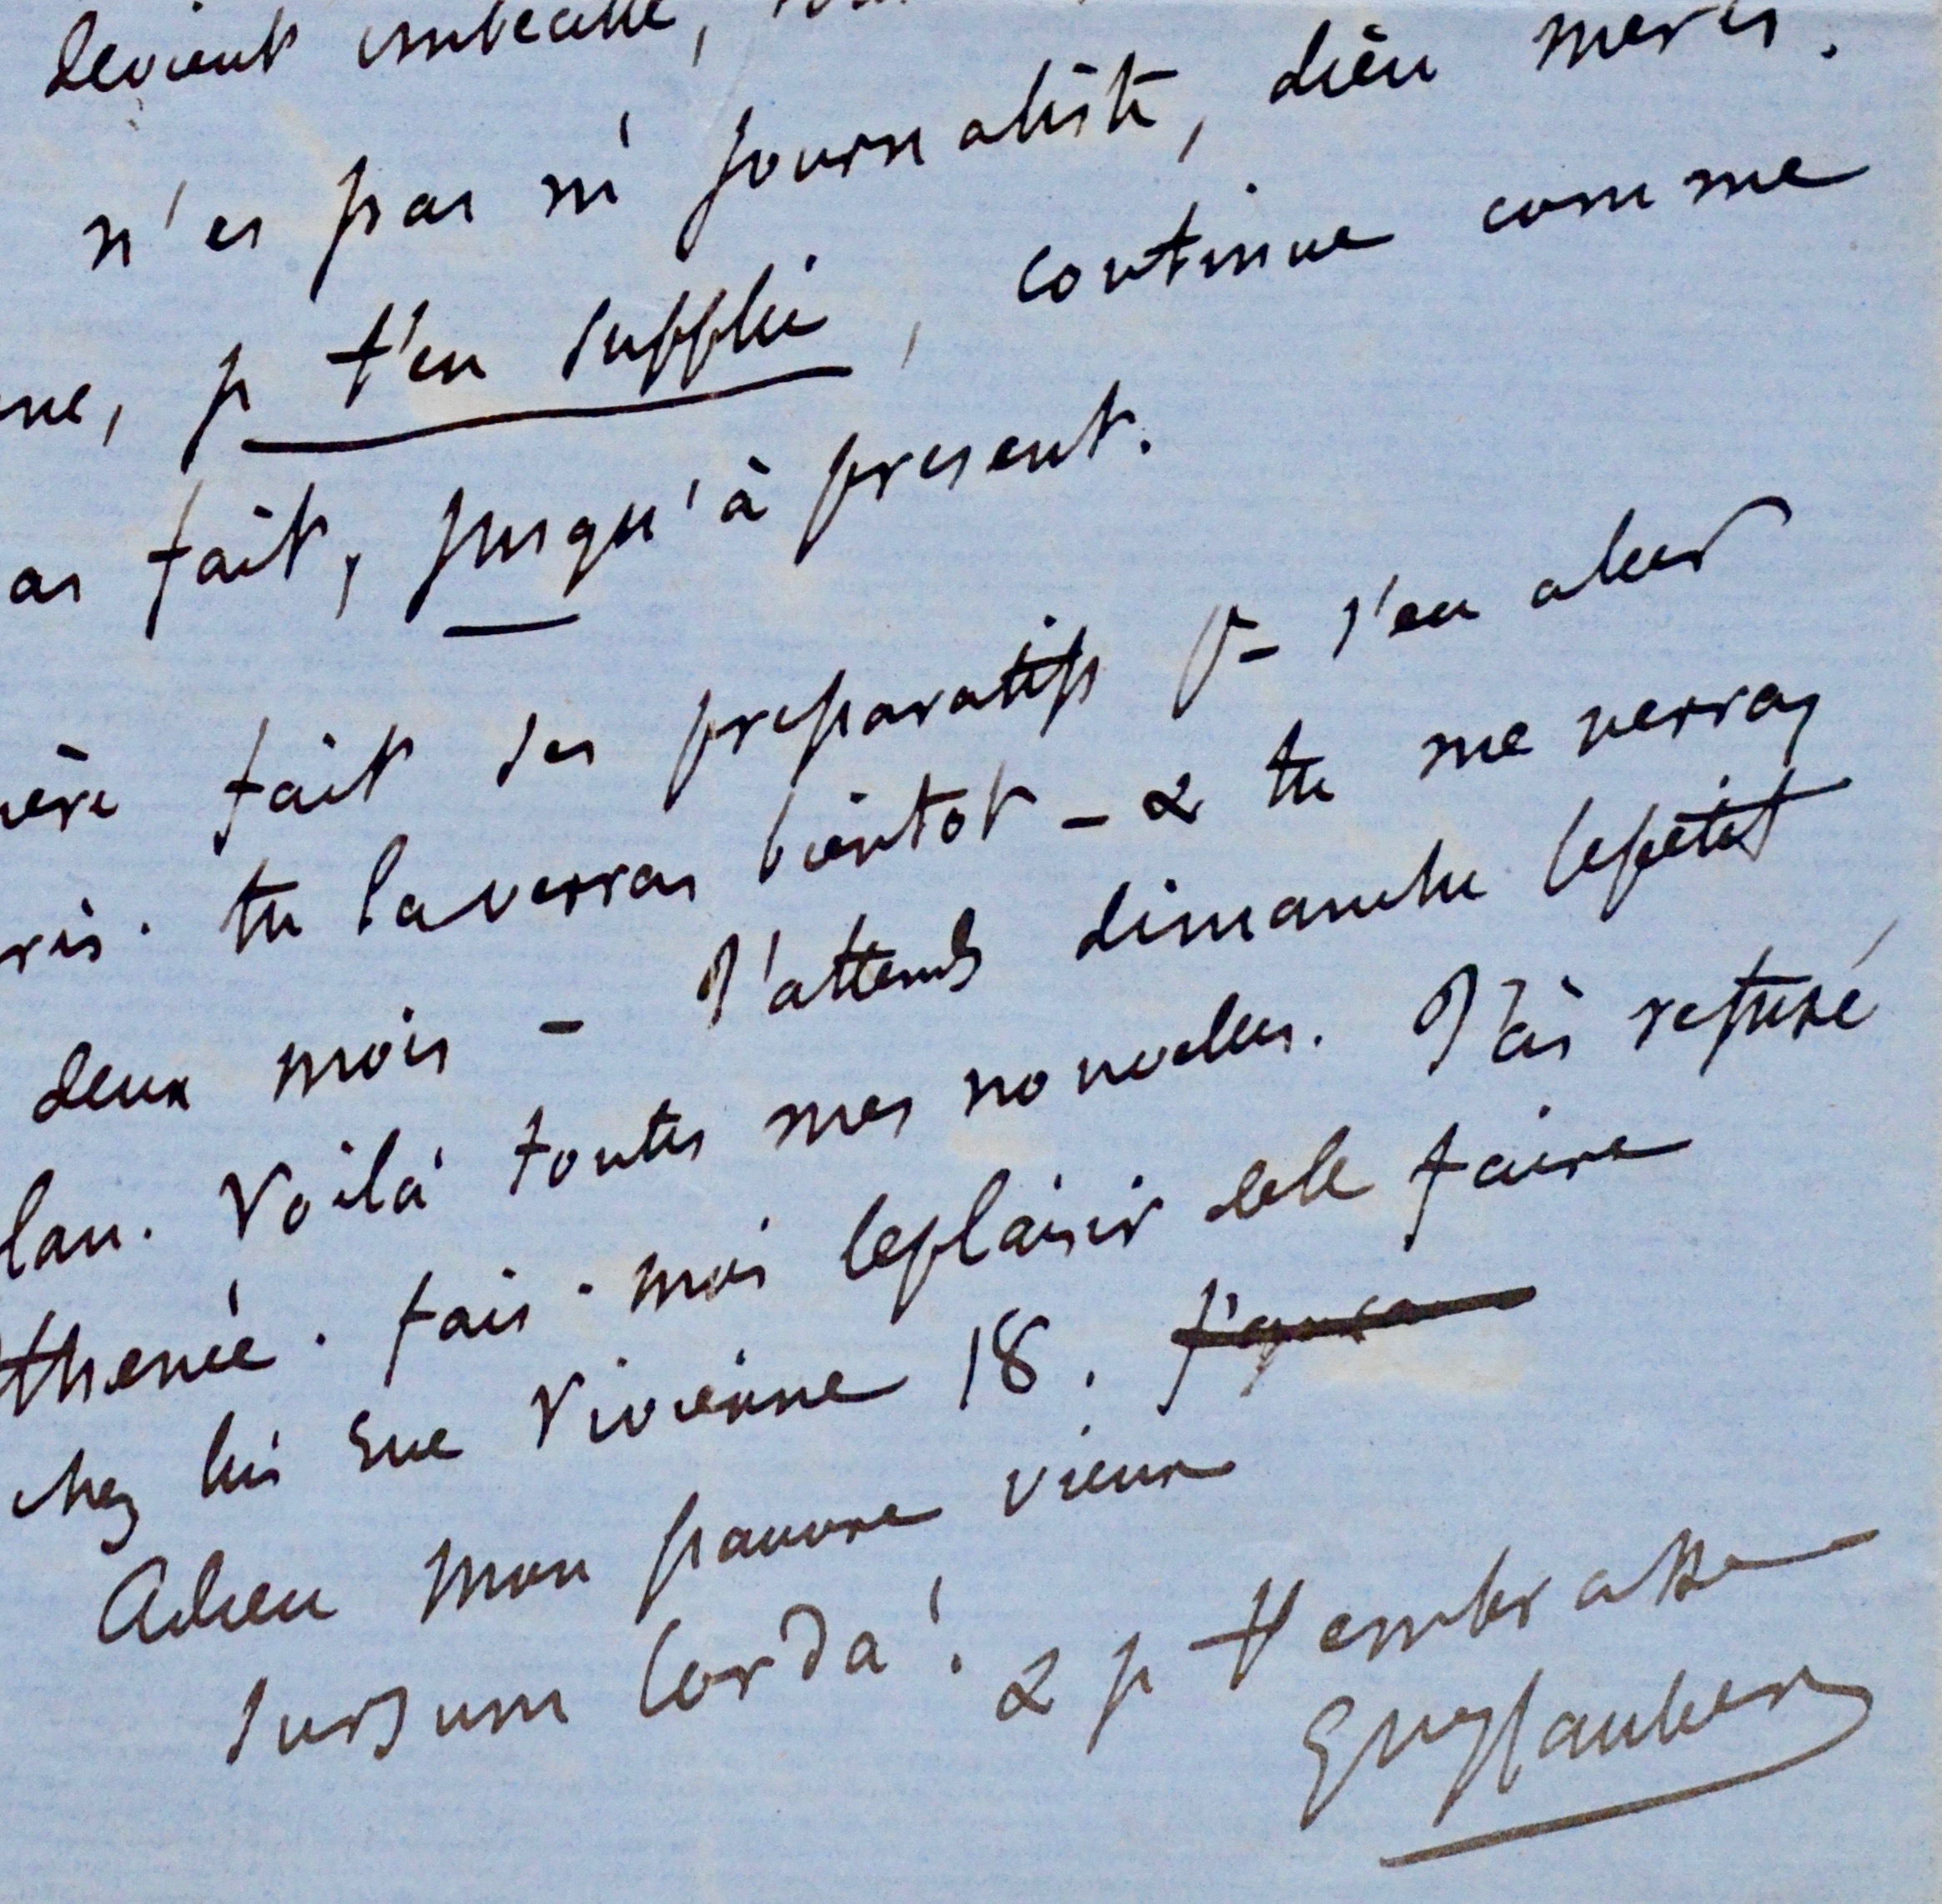 devient imbécille,
n'es pas né journaliste, dieu merci.
je t'en supplie, continue comme
as fait, jusqu'à present.
fait des preparatifs pr s'en aller
tu la verras bientot – & tu me verras
deux mois – J'attends dimanche le petit
lan. Voilà toutes mes nouvelles. J'ai refusé
thenée. fais-moi le plaisir de le faire
chez lui rue Vivienne 18.
Adieu mon pauvre vieux
sursum corda! & je t'embrasse
Gve Flaubert